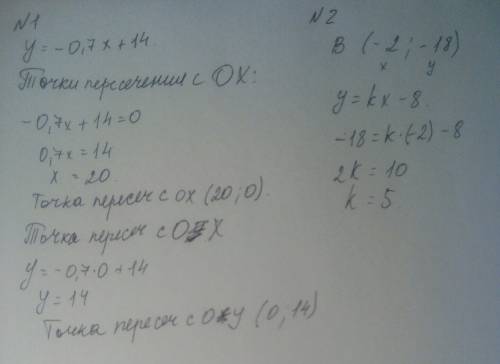 N1
y = -0,7x + 14
Точки пересечения с OX:
-0,7x + 14 = 0
0,7x = 14
x = 20
Точка пересеч с ox (20; 0).
Точка пересеч с O X
y = -0,7·0 + 14
y = 14
Точка пересеч с Oy (0; 14)
N2
B (-2; -18)
x y
y = kx - 8.
-18 = k·(-2) - 8
2k = 10
k = 5.